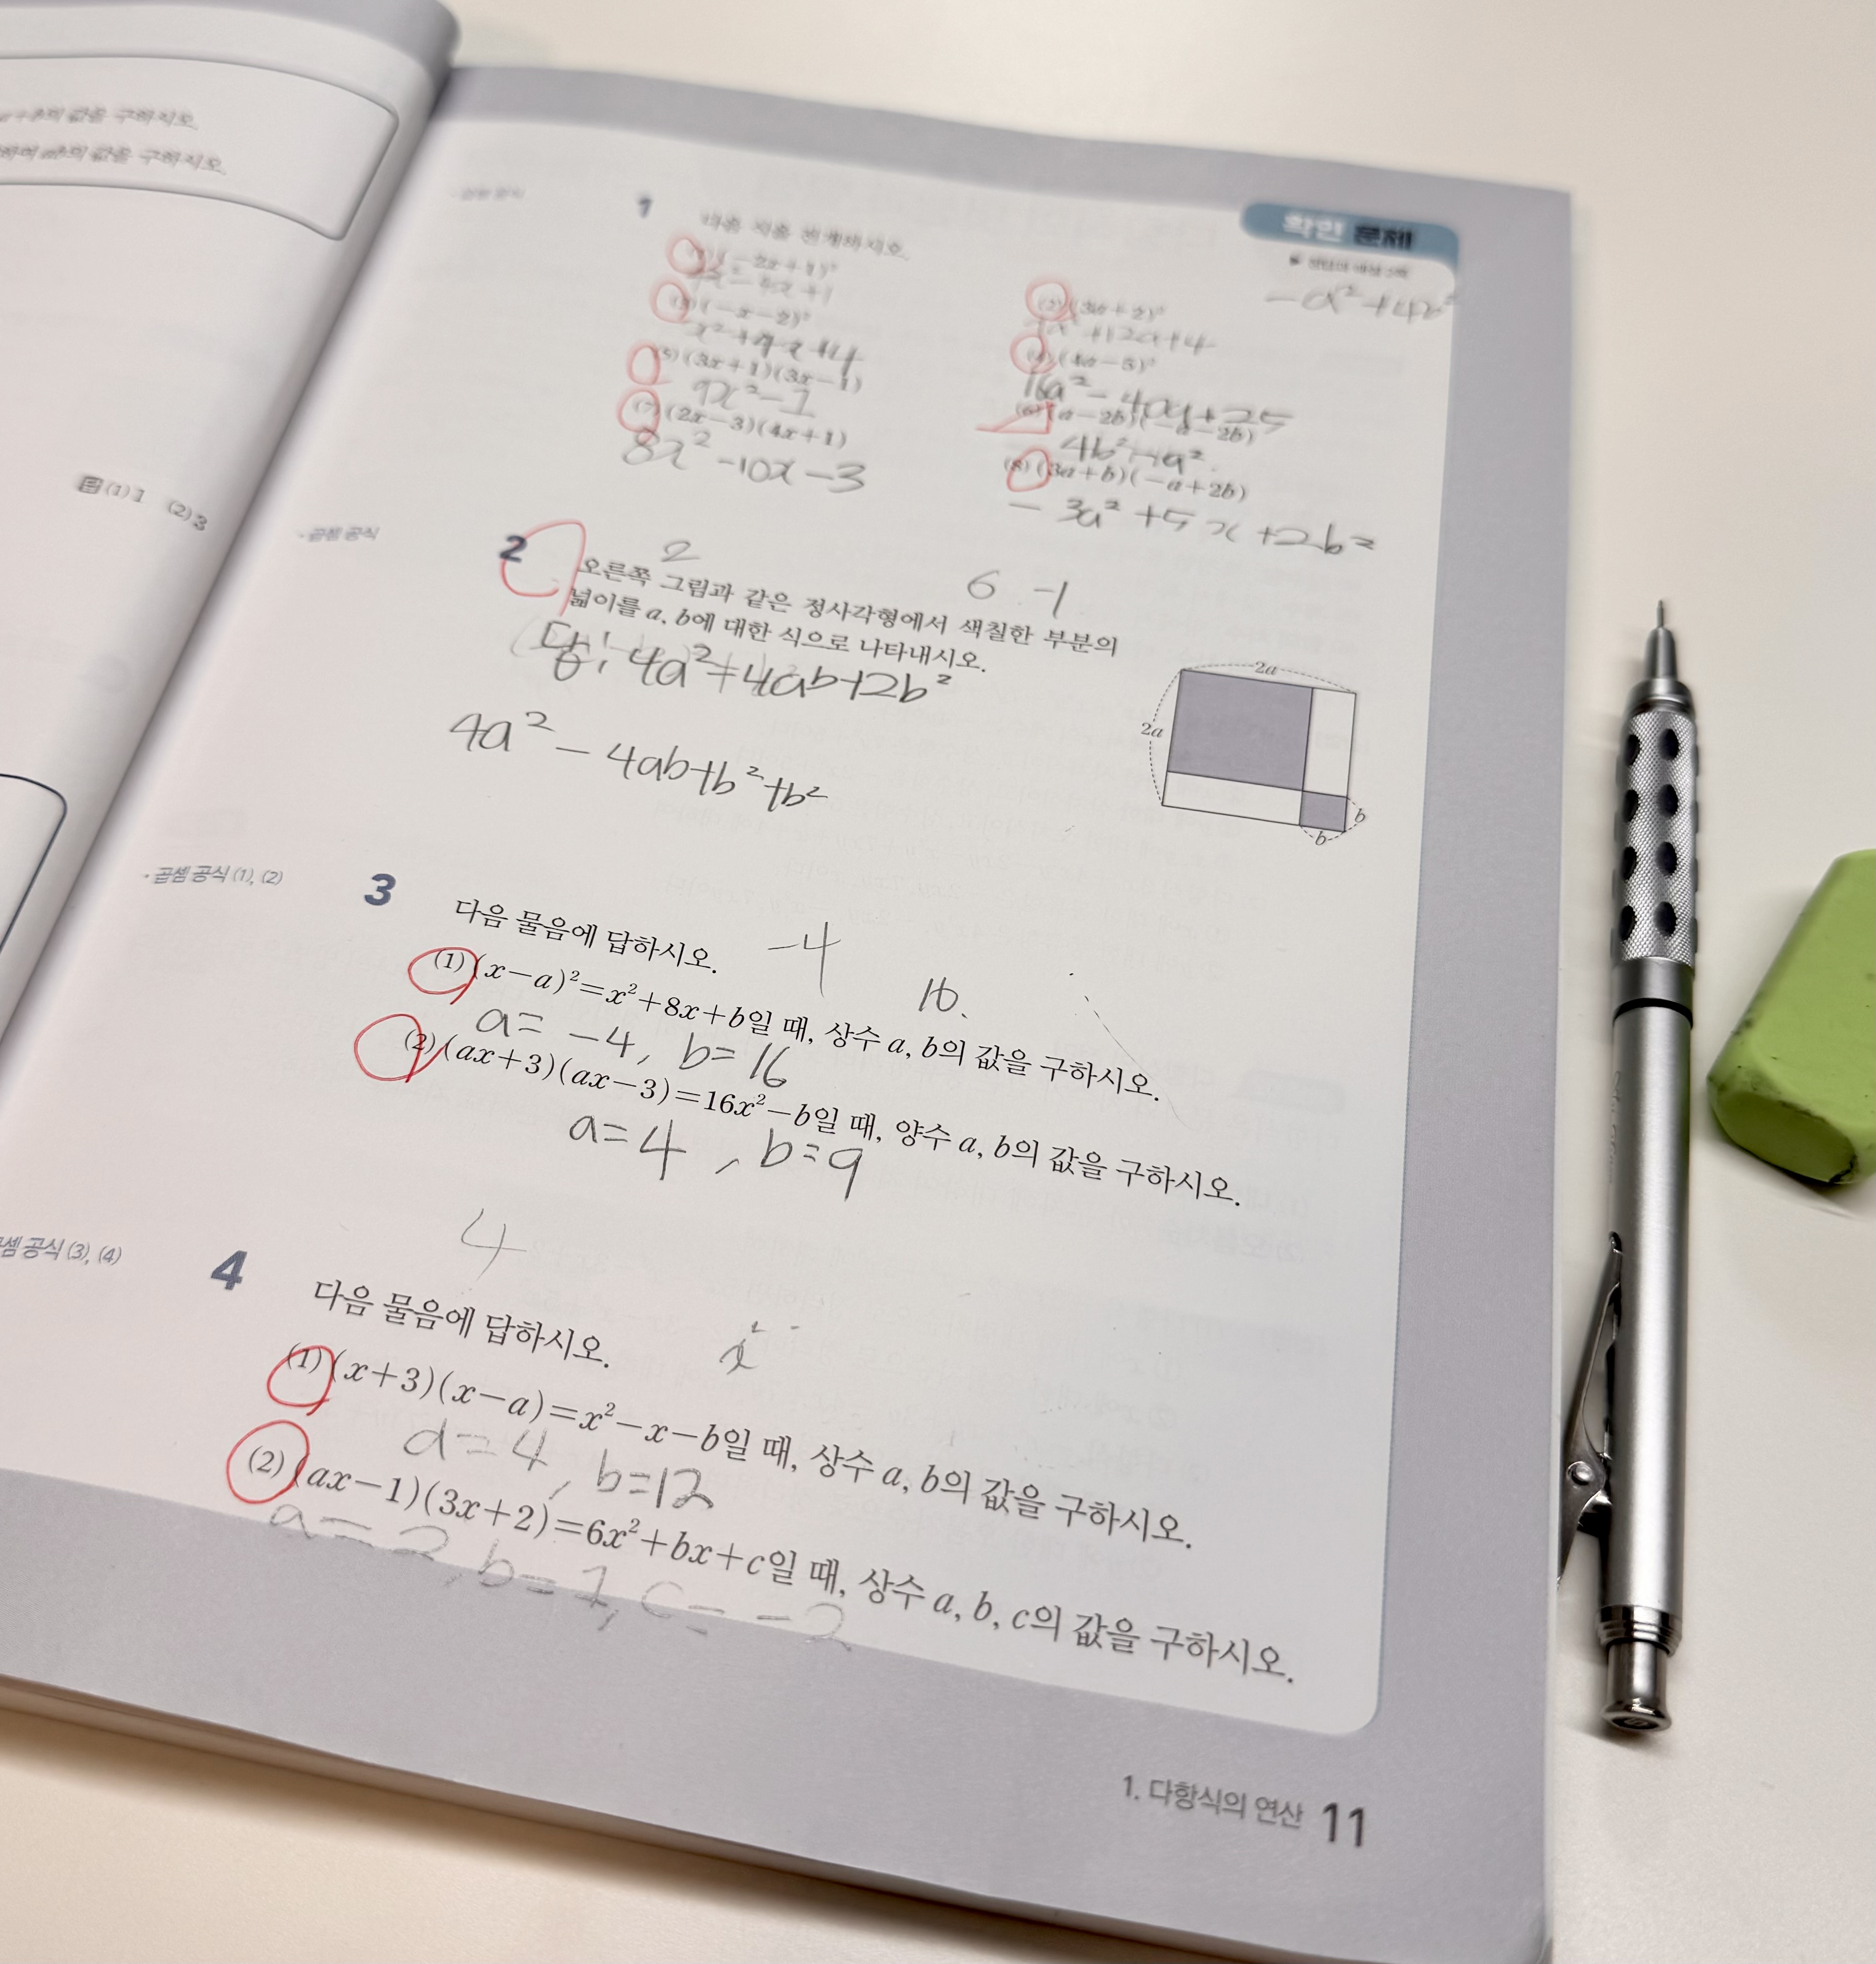 a+b의 값을 구하시오.
하여 ab의 값을 구하시오.
답 (1) 1 (2) 3
확인 문제
-a²+4b²
· 곱셈 공식
1
다음 식을 전개하시오.
(1) (-2x+1)²
4x²-4x+1
(2) (3a+2)²
+12a+4
(3) (-x-2)²
x²+4x+4
(4) (4a-5)²
16a²-40a+25
(5) (3x+1)(3x-1)
9x²-1
(6) (a-2b)(-a-2b)
4b²-a²
(7) (2x-3)(4x+1)
8x²-10x-3
(8) (3a+b)(-a+2b)
-3a²+5x+2b²
· 곱셈 공식
2
2
6 -1
오른쪽 그림과 같은 정사각형에서 색칠한 부분의
넓이를 a, b에 대한 식으로 나타내시오.
답: 4a²-4ab+2b²
4a²-4ab+b²+b²
2a
2a
b
b
· 곱셈 공식 (1), (2)
3
다음 물음에 답하시오.
-4
16.
(1) (x-a)²=x²+8x+b일 때, 상수 a, b의 값을 구하시오.
a=-4, b=16
(2) (ax+3)(ax-3)=16x²-b일 때, 양수 a, b의 값을 구하시오.
a=4, b=9
4
셈 공식 (3), (4)
4
다음 물음에 답하시오.
x² -
(1) (x+3)(x-a)=x²-x-b일 때, 상수 a, b의 값을 구하시오.
a=4, b=12
(2) (ax-1)(3x+2)=6x²+bx+c일 때, 상수 a, b, c의 값을 구하시오.
a=2, b=1, c=-2
1. 다항식의 연산 11